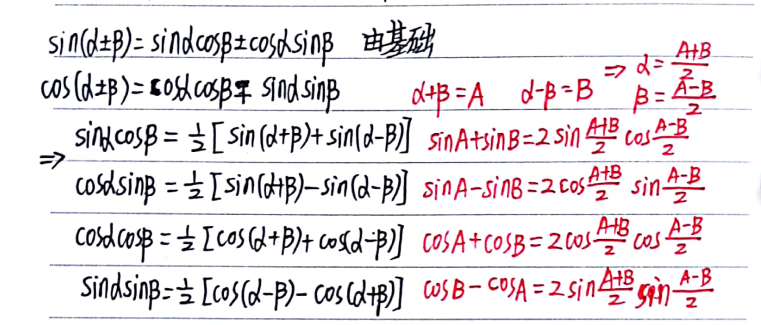 sin(α±β)=sinαcosβ±cosαsinβ 由基础
cos(α±β)=cosαcosβ∓sinαsinβ α+β=A α-β=B ⇒ α=\frac{A+B}{2} β=\frac{A-B}{2}
⇒ sinαcosβ=\frac{1}{2}[sin(α+β)+sin(α-β)] sinA+sinB=2sin\frac{A+B}{2}cos\frac{A-B}{2}
cosαsinβ=\frac{1}{2}[sin(α+β)-sin(α-β)] sinA-sinB=2cos\frac{A+B}{2}sin\frac{A-B}{2}
cosαcosβ=\frac{1}{2}[cos(α+β)+cos(α-β)] cosA+cosB=2cos\frac{A+B}{2}cos\frac{A-B}{2}
sinαsinβ=\frac{1}{2}[cos(α-β)-cos(α+β)] cosB-cosA=2sin\frac{A+B}{2}sin\frac{A-B}{2}